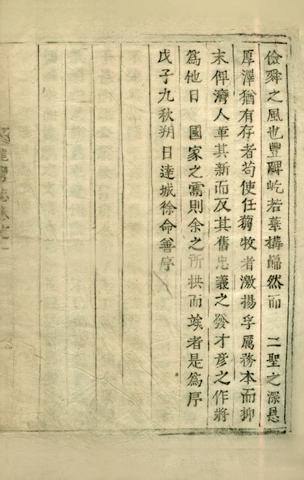 儉舜之風也豐碑屹若華構巋然而 二聖之深恩
厚澤猶有存者苟使任芻牧者激揚孚厲務本而抑
末俾濟人革其新而及其舊忠義之發才彥之作將
爲他日 國家之需則余之所拱而竢者是爲序
戊子九秋朔日達城徐命善序